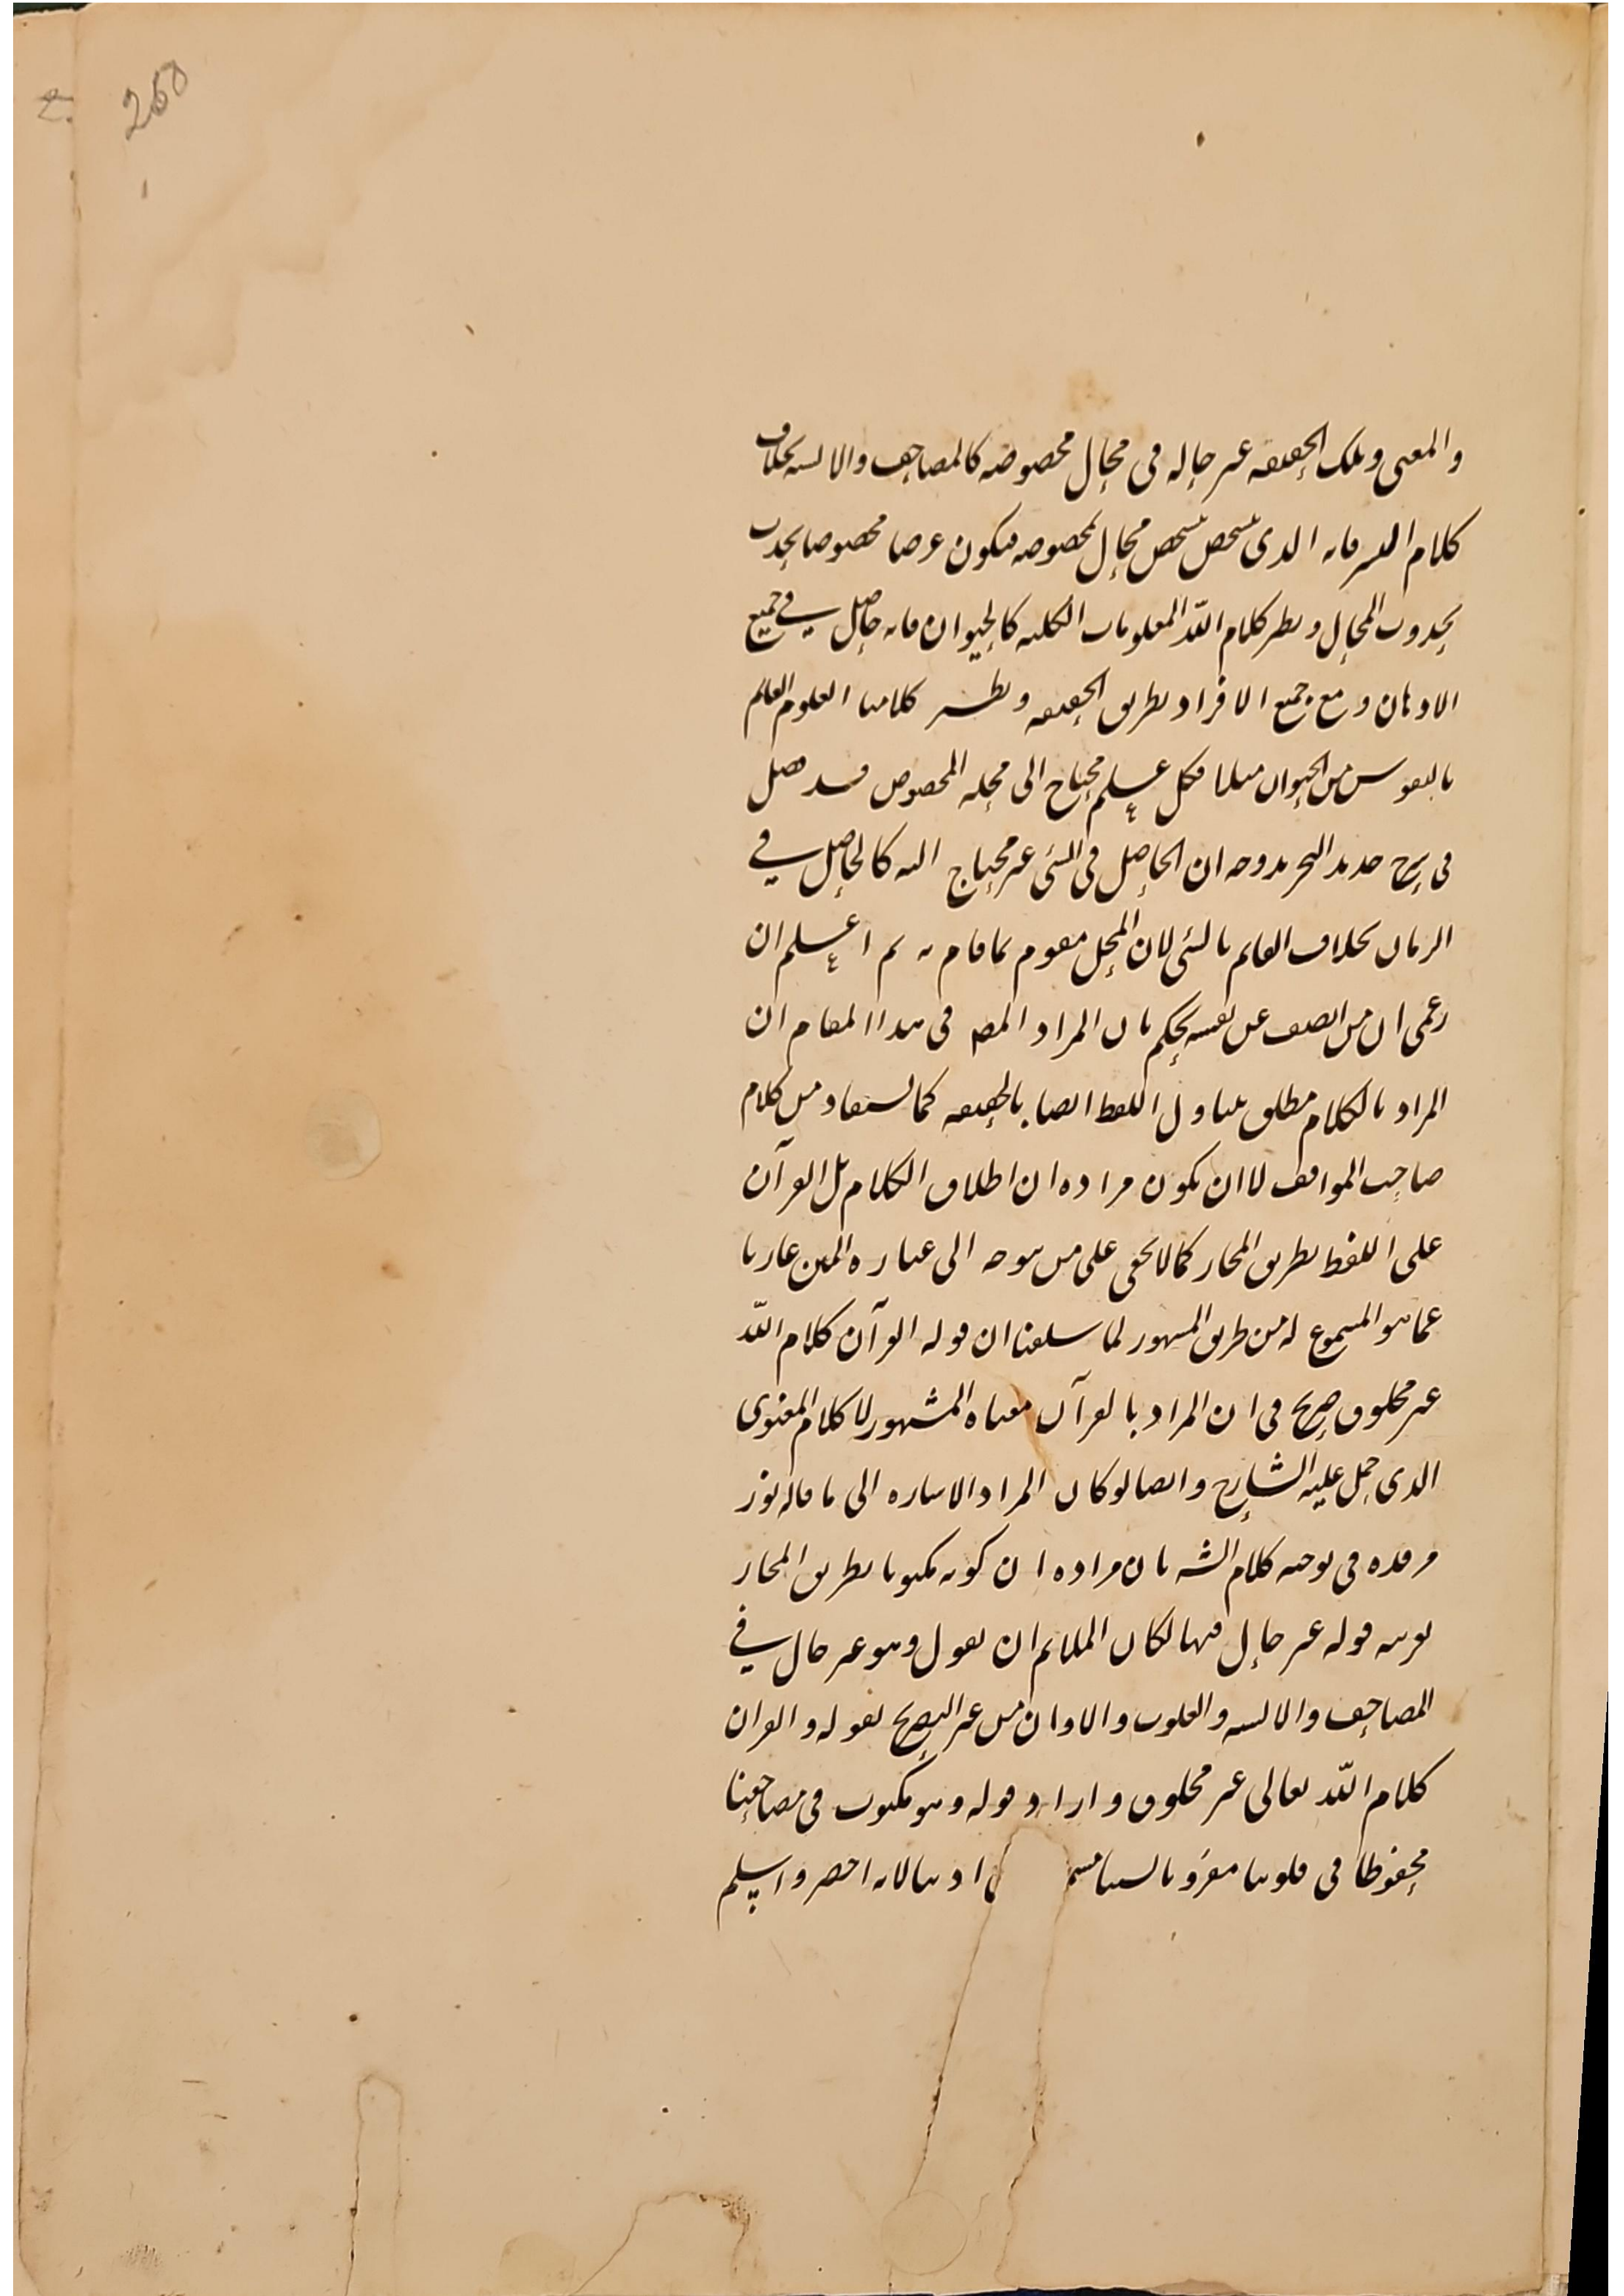 260
والمعنى وتلك الحقيقه غير حاله فى محال مخصوصه كالمصاحف والالسنه بخلاف
كلام البشر فانه الذى يتشخص بتشخص محال مخصوصه فيكون عرضا مخصوصا يحدث
بحدوث المحال ونظير كلام الله المعلومات الكليه كالحيوان فانه حاصل فى جميع
الاذهان ومع جميع الافراد بطريق الحقيقه ونظير كلامنا العلوم القائم
بالنفوس من الحيوان مثلا فكل علم محتاج الى محله المخصوص فقد فصل
فى شرح جديد التجريد وجه ان الحاصل فى الشئ غير محتاج اليه كالحاصل فى
الزمان بخلاف القائم بالشئ لان المحل مقوم لما قام به ثم اعلم ان
زعمى ان من انصف عن نفسه يحكم بان المراد المصـ فى هذا المقام ان
المراد بالكلام مطلق يتناول اللفظ ايضا بالحقيقه كما يستفاد من كلام
صاحب المواقف لا ان يكون مراده ان اطلاق الكلام بل القرآن
على اللفظ بطريق المجاز كما لا يخفى على من توجه الى عباره المتن عاريا
عما هو المسموع له من طريق المشهور لما سلفنا ان قوله القرآن كلام الله
غير مخلوق صريح فى ان المراد بالقرآن معناه المشهور لا كلام المعنوى
الذى حمل عليه الشارح وايضا لو كان المراد الاشاره الى ما قاله نور
مرقده فى توجيه كلام الشـ بان مراده ان كونه مكتوبا بطريق المجاز
بقرينه قوله غير حال فيها لكان الملائم ان يقول وهو غير حال فى
المصاحف والالسنه والقلوب والاذان من غير التصريح بقوله والقران
كلام الله تعالى غير مخلوق وايراد قوله وهو مكتوب فى مصاحفنا
محفوظا فى قلوبنا مقرو بالسنتنا اذ هنا لانه اخصر واسلم